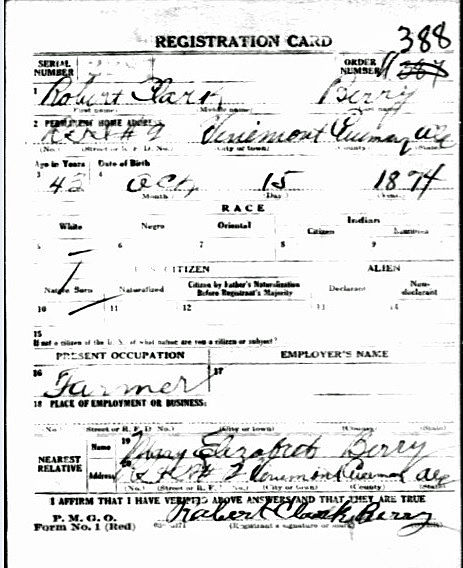 REGISTRATION CARD 388
SERIAL NUMBER ORDER NUMBER
1 Robert Clark Berry
First name Middle name Last name
2 PERMANENT HOME ADDRESS
# 9 Ala
(No.) (Street or R. F. D. No.) (City or town) (County) (State)
Age in Years Date of Birth
3 4
43 Oct, 15 1874
Month Day Year
RACE
White Negro Oriental Indian
Citizen Noncitizen
5 6 7 8 9
U. S. CITIZEN ALIEN
Native Born Naturalized Citizen by Father's Naturalization Before Registrant's Majority Declarant Non-declarant
10 11 12 13 14
15
If not a citizen of the U. S. of what nation are you a citizen or subject?
PRESENT OCCUPATION EMPLOYER'S NAME
16 Farmer 17
18 PLACE OF EMPLOYMENT OR BUSINESS:
No. Street or R. F. D. No.) (City or town) (County) (State)
NEAREST RELATIVE
Name 19 Mary Elizabeth Berry
Address 20 Ala
(No.) (Street or R. F. D. No.) (City or town) (County) (State)
I AFFIRM THAT I HAVE VERIFIED ABOVE ANSWERS AND THAT THEY ARE TRUE
P. M. G. O.
Form No. 1 (Red) Robert Clark Berry
(Registrant's signature or mark)